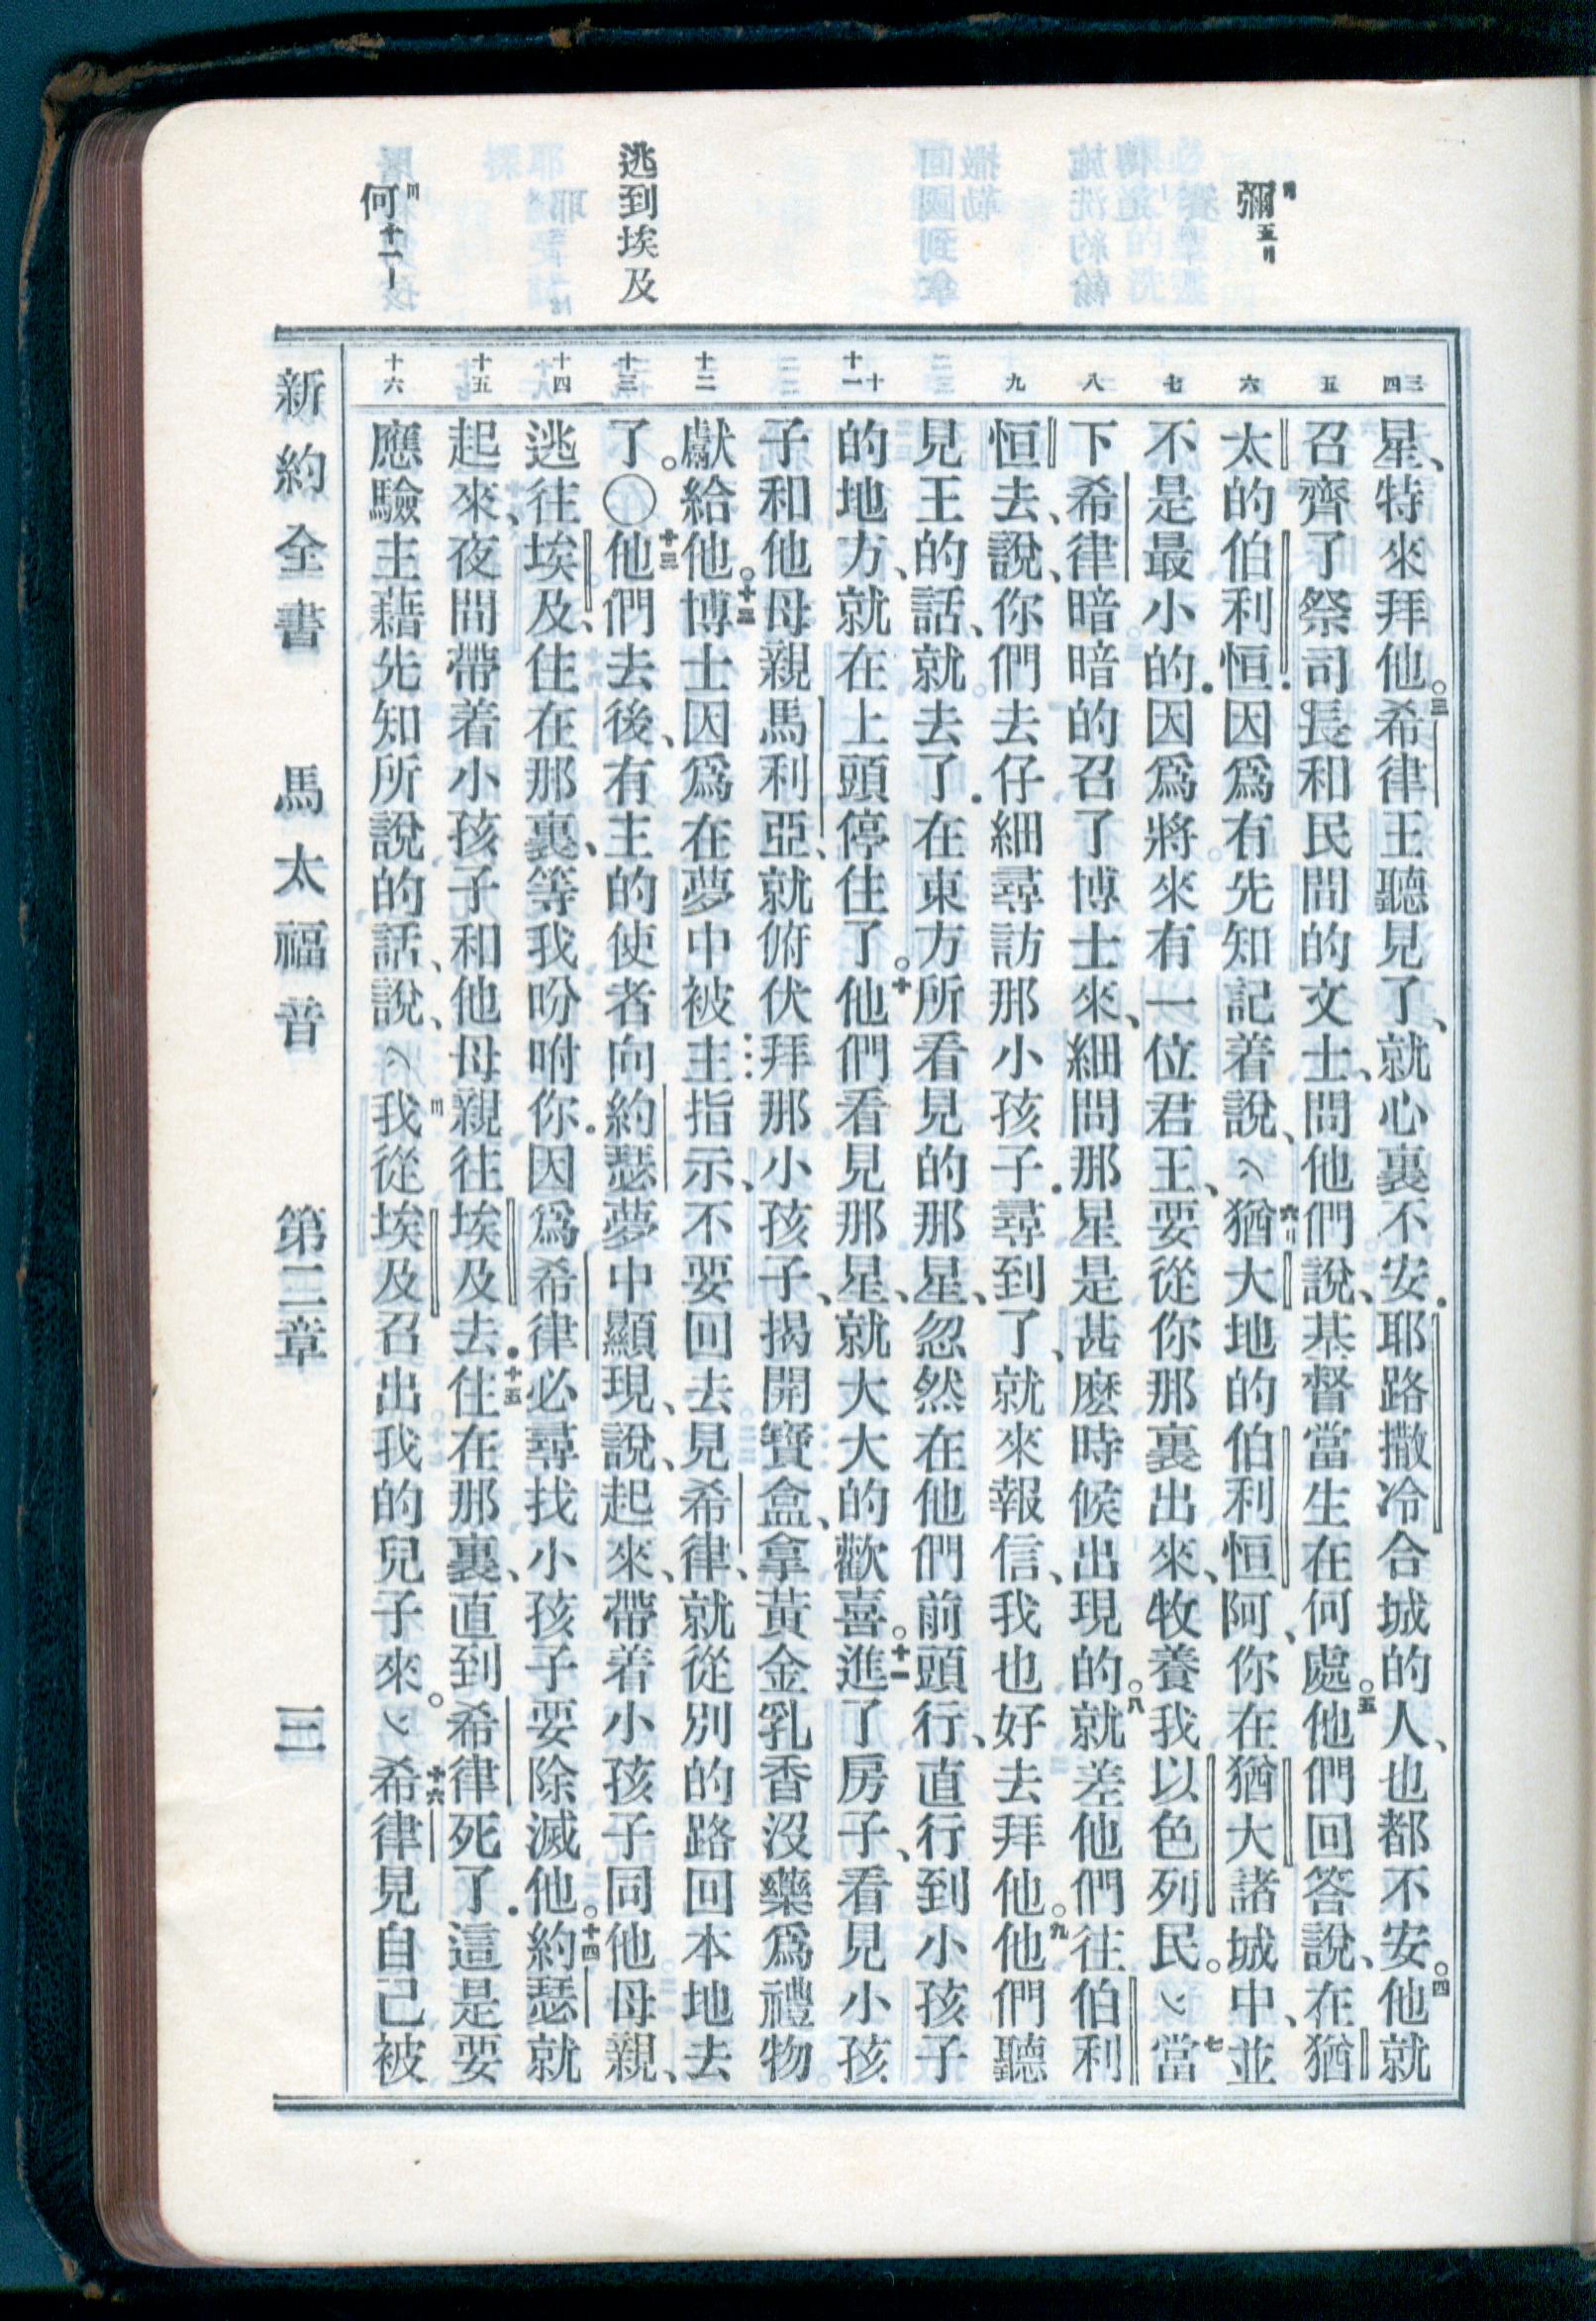 彌五〢
逃到埃及
何十一〡
三
四
五
六
七
八
九
十
十一
十二
十三
十四
十五
十六
星、特來拜他。三希律王聽見了、就心裏不安．耶路撒冷合城的人、也都不安。四他就
召齊了祭司長和民間的文士、問他們說、基督當生在何處。五他們回答說、在猶
太的伯利恒．因爲有先知記着說、〽六〢猶大地的伯利恒阿、你在猶大諸城中、並
不是最小的．因爲將來有一位君王、要從你那裏出來、牧養我以色列民。〽七當
下希律暗暗的召了博士來、細問那星是甚麽時候出現的。八就差他們往伯利
恒去、說、你們去仔細尋訪那小孩子．尋到了、就來報信、我也好去拜他。九他們聽
見王的話、就去了．在東方所看見的那星、忽然在他們前頭行、直行到小孩子
的地方、就在上頭停住了。十他們看見那星、就大大的歡喜。十一進了房子、看見小孩
子和他母親馬利亞、就俯伏拜那小孩子、揭開寶盒、拿黃金乳香沒藥爲禮物
獻給他。十二博士因爲在夢中被主指示、不要回去見希律、就從別的路回本地去
了。〇十三他們去後、有主的使者向約瑟夢中顯現、說、起來、帶着小孩子同他母親、
逃往埃及、住在那裏、等我吩咐你．因爲希律必尋找小孩子要除滅他。十四約瑟就
起來、夜間帶着小孩子和他母親往埃及去．十五住在那裏、直到希律死了．這是要
應驗主藉先知所說的話、說、〽〣我從埃及召出我的兒子來。〽十六希律見自己被
新約全書　馬太福音　第二章　三